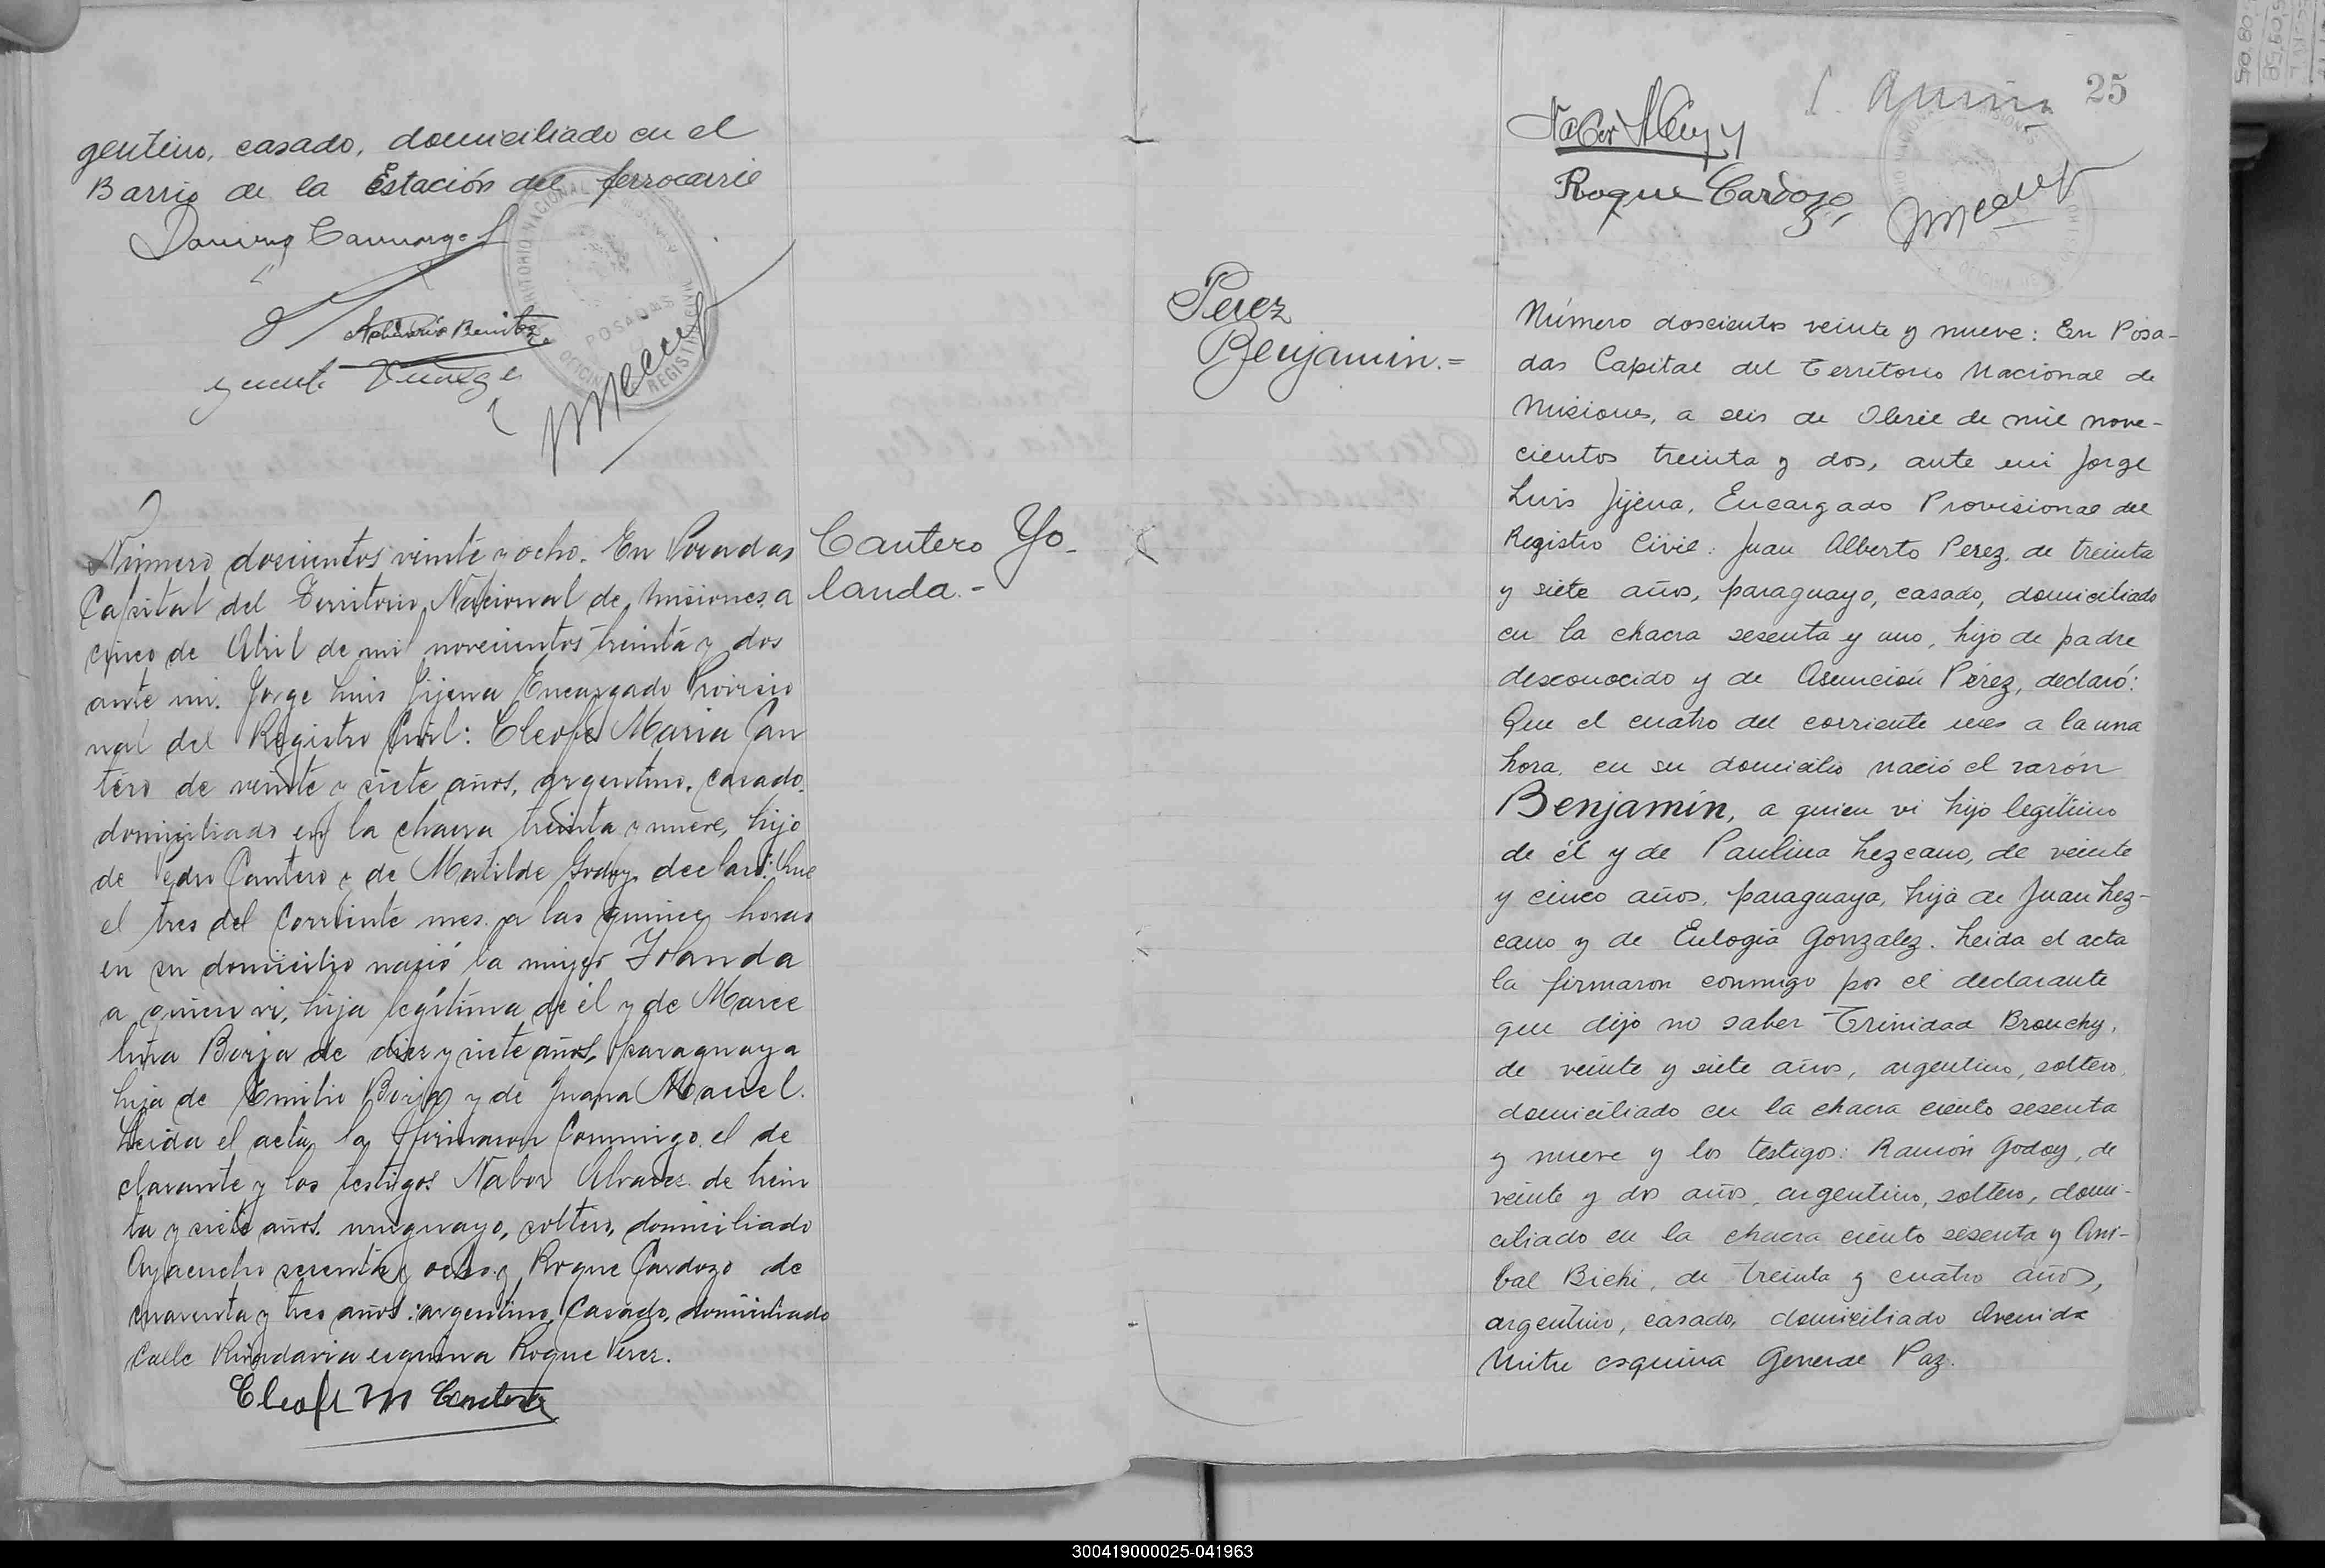 gentino, casado, domiciliado en el
Barrio de la Estación del ferrocarril
POSADAS
Número doscientos veinte y ocho. En Posadas
Capital del Territorio Nacional de Misiones, a
cinco de Abril de mil novecientos treinta y dos
ante mi. Jorge Luis Jijena Encargado Provisio
nal del Registro Civil: Cleofé Maria Can
tero de veinte y siete años, argentino, casado,
domiciliado en la chacra treinta y nueve, hijo
de Pedro Cantero y de Matilde Godoy, declaró: Que
el tres del corriente mes a las quince horas
en su domicilio nació la mujer Yolanda
a quien vi, hija legítima de él y de Marce
lina Borja de diez y siete años, paraguaya
hija de Emilio Borja y de Juana Maciel.
Leida el acta, la firmaron conmigo el de
clarante y los testigos Nabor Alvarez de trein
ta y siete años, uruguayo, soltero, domiciliado
Ayacucho sesenta y ocho y Roque Cardozo de
cuarenta y tres años, argentino, casado, domiciliado
calle Rivadavia esquina Roque Perez.
Cleofe M Cantero
Cantero Yo-
landa.-
25
Roque Cardozo
Perez
Benjamin.=
Número doscientos veinte y nueve: En Posa-
das Capital del Territorio Nacional de
Misiones, a seis de Abril de mil nove-
cientos treinta y dos, ante mi Jorge
Luis Jijena, Encargado Provisional del
Registro Civil: Juan Alberto Perez, de treinta
y siete años, paraguayo, casado, domiciliado
en la chacra sesenta y uno, hijo de padre
desconocido y de Asunción Pérez, declaró:
Que el cuatro del corriente mes a la una
hora, en su domicilio nació el varón
Benjamín, a quien vi hijo legítimo
de él y de Paulina Lezcano, de veinte
y cinco años, paraguaya, hija de Juan Lez-
cano y de Eulogia Gonzalez. Leida el acta
la firmaron conmigo por el declarante
que dijo no saber Trinidad Brouchy,
de veinte y siete años, argentino, soltero,
domiciliado en la chacra ciento sesenta
y nueve y los testigos: Ramón Godoy, de
veinte y dos años, argentino, soltero, domi-
ciliado en la chacra ciento sesenta y Ani-
bal Bichi, de treinta y cuatro años,
argentino, casado, domiciliado Avenida
Mitre esquina General Paz.
300419000025-041963